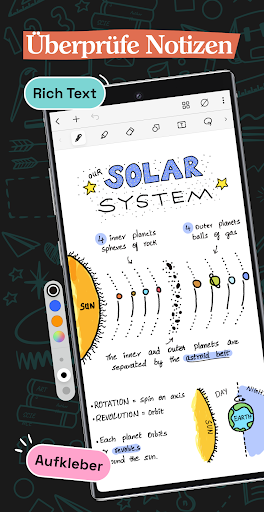 Überprüfe Notizen
Rich Text
OUR
SOLAR
SYSTEM
4 inner planets
spheres of rock
4 Outer planets
balls of gas
SUN
The inner and outer planets are
separated by the astroid belt
• ROTATION = spin on axis
• REVOLUTION = Orbit
• Each planet Orbits
or revolves
around the sun.
DAY
NIGHT
SUN
EARTH
Aufkleber